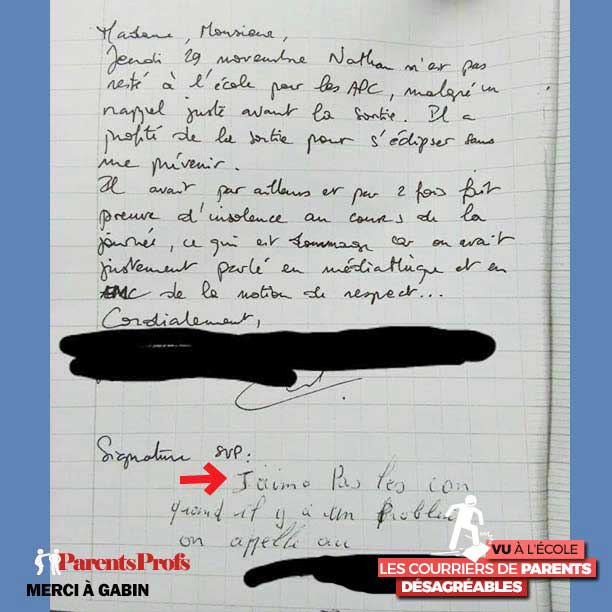 Madame, Monsieur,
Jeudi 29 novembre Nathan n'est pas
resté à l'école pour les APC, malgré un
rappel juste avant la sortie. Il a
profité de la sortie pour s'éclipser sans
me prévenir.
Il avait par ailleurs et par 2 fois fait
preuve d'insolence au cours de la
journée, ce qui est dommage car on avait
justement parlé en médiathèque et en
EMC de la notion de respect...
Cordialement,
Signature SVP:
J'aime Pas les con
quand il y à un Problem
on appelle au
ParentsProfs
MERCI À GABIN
VU À L'ÉCOLE
LES COURRIERS DE PARENTS
DÉSAGRÉABLES